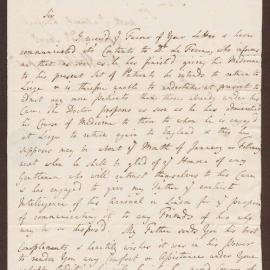 Sir
I receiv'd ye Favour of your Letter & have
communicated its Contents to Dr. de
that as soon as he has finished giving his Medicine
to his present Set of Patients he intends to return to
Liege & is therefore unable to undertake at present to
admit any more patients than those already under his
Care. The Doctor proposes as soon as he has
his Course of Medicine to them to whom he is engag'd
at Liege to return again to England & this he
supposes may be about ye Month of January or February
next when he shall be glad of ye Honour of any
Gentlemen who will entrust themselves to his Care
& has engaged to give my Father ye earliest
Intelligence of his Arrival in London for ye purpose
of communicating it to any Friends of his who
may be so disposed. My Father sends you his best
Compliments & heartily wishes it was in his power
to render you any Comfort or Assistance under your